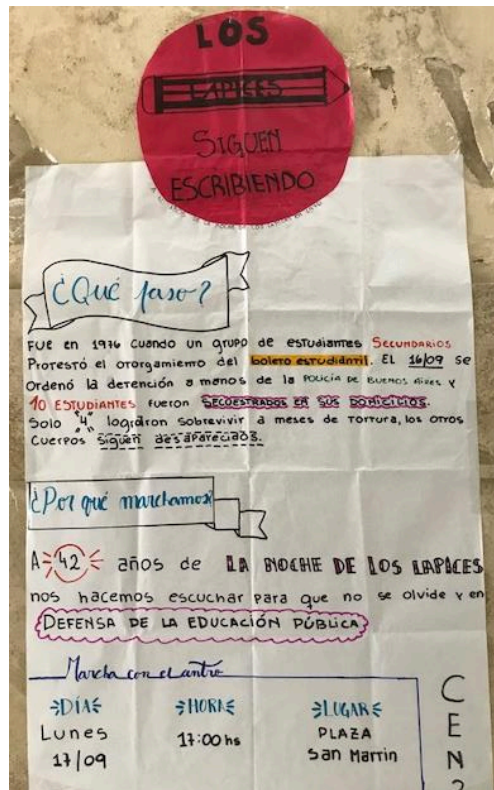 LOS
LAPICES
SIGUEN
ESCRIBIENDO
¿Qué paso?
FUE en 1976 cuando un grupo de estudiantes SECUNDARIOS
Protestó el otorgamiento del boleto estudiantil. EL 16/09 se
Ordenó la detención a manos de la POLICÍA DE BUENOS AIRES Y
10 ESTUDIANTES fueron SECUESTRADOS EN SUS DOMICILIOS.
Solo "4" lograron sobrevivir a meses de tortura, los otros
Cuerpos siguen desaparecidos.
¿Por qué marchamos?
A 42 años de LA NOCHE DE LOS LAPICES
nos hacemos escuchar para que no se olvide y en
DEFENSA DE LA EDUCACIÓN PÚBLICA
Marcha con el antro
DÍA
HORA
LUGAR
Lunes
17:00 hs
PLAZA
17/09
San Martin
C
E
N